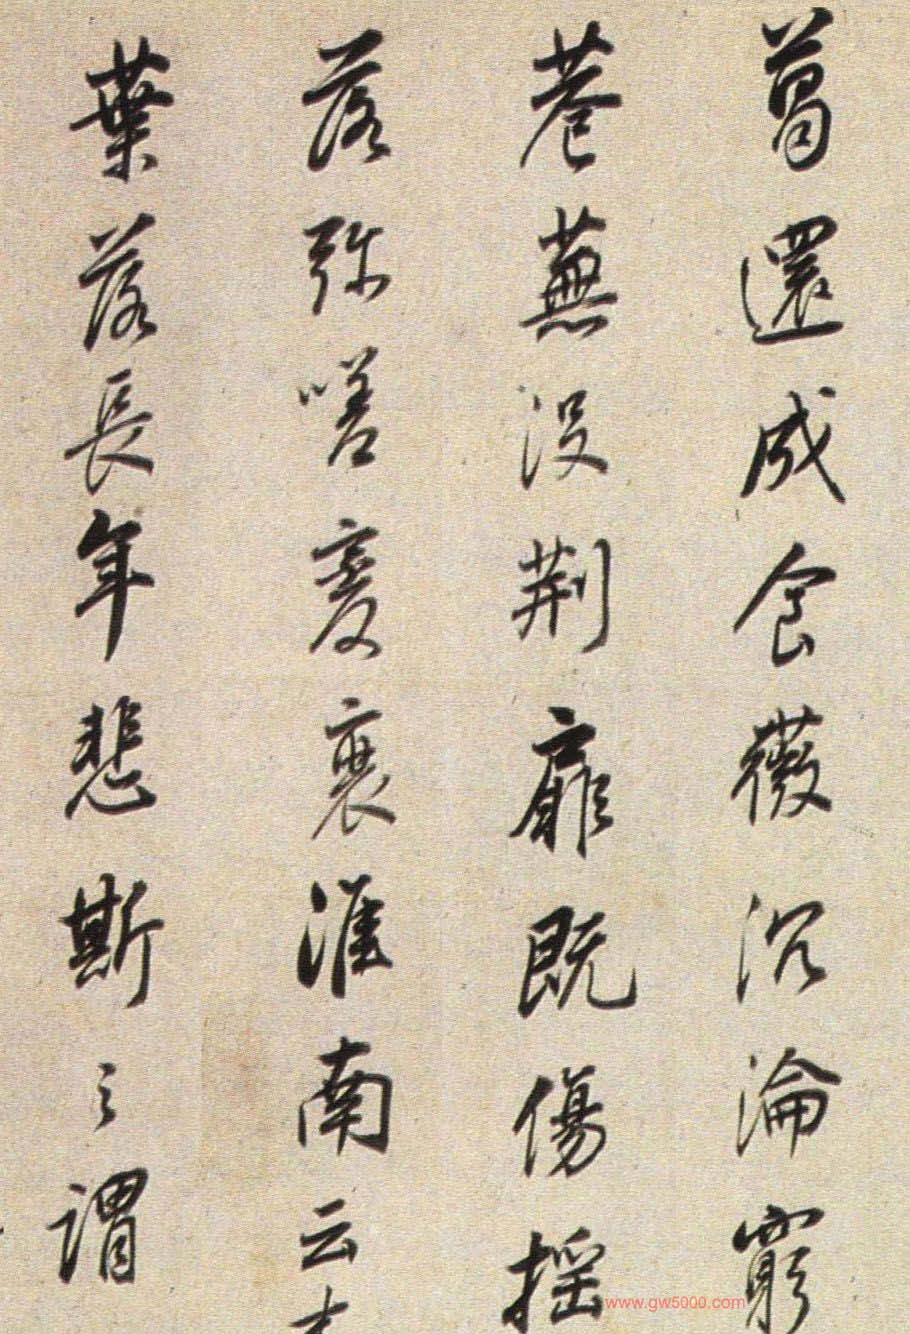 葛還成食薇沉淪窮
巷蕪沒荊扉既傷搖
落弥嗟變衰淮南云
葉落長年悲斯之謂
www.gw5000.com